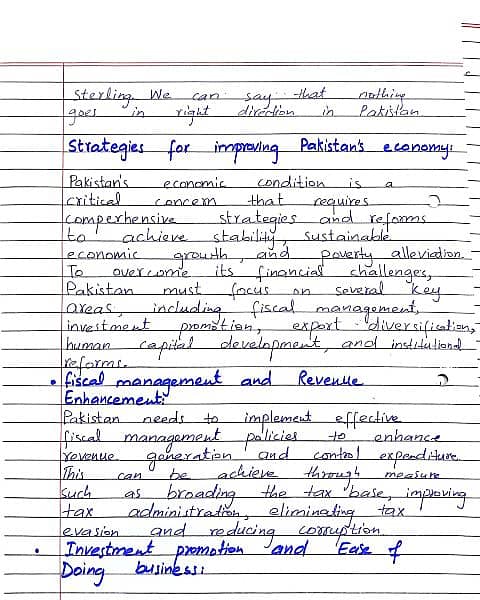 Sterling. We can say that nothing
goes in right direction in Pakistan
Strategies for improving Pakistan's economy:
Pakistan's economic condition is a
critical concern that requires
comperhensive strategies and reforms
to achieve stability, sustainable
economic growth, and poverty alleviation.
To overcome its financial challenges,
Pakistan must focus on several key
areas, including fiscal management,
investment promotion, export diversification,
human capital development, and institutional
reforms.
• fiscal management and Revenue
Enhancement:
Pakistan needs to implement effective
fiscal management policies to enhance
revenue generation and control expenditure.
This can be achieve through measure
such as broading the tax base, improving
tax administration, eliminating tax
evasion and reducing corruption.
• Investment promotion and Ease of
Doing business: